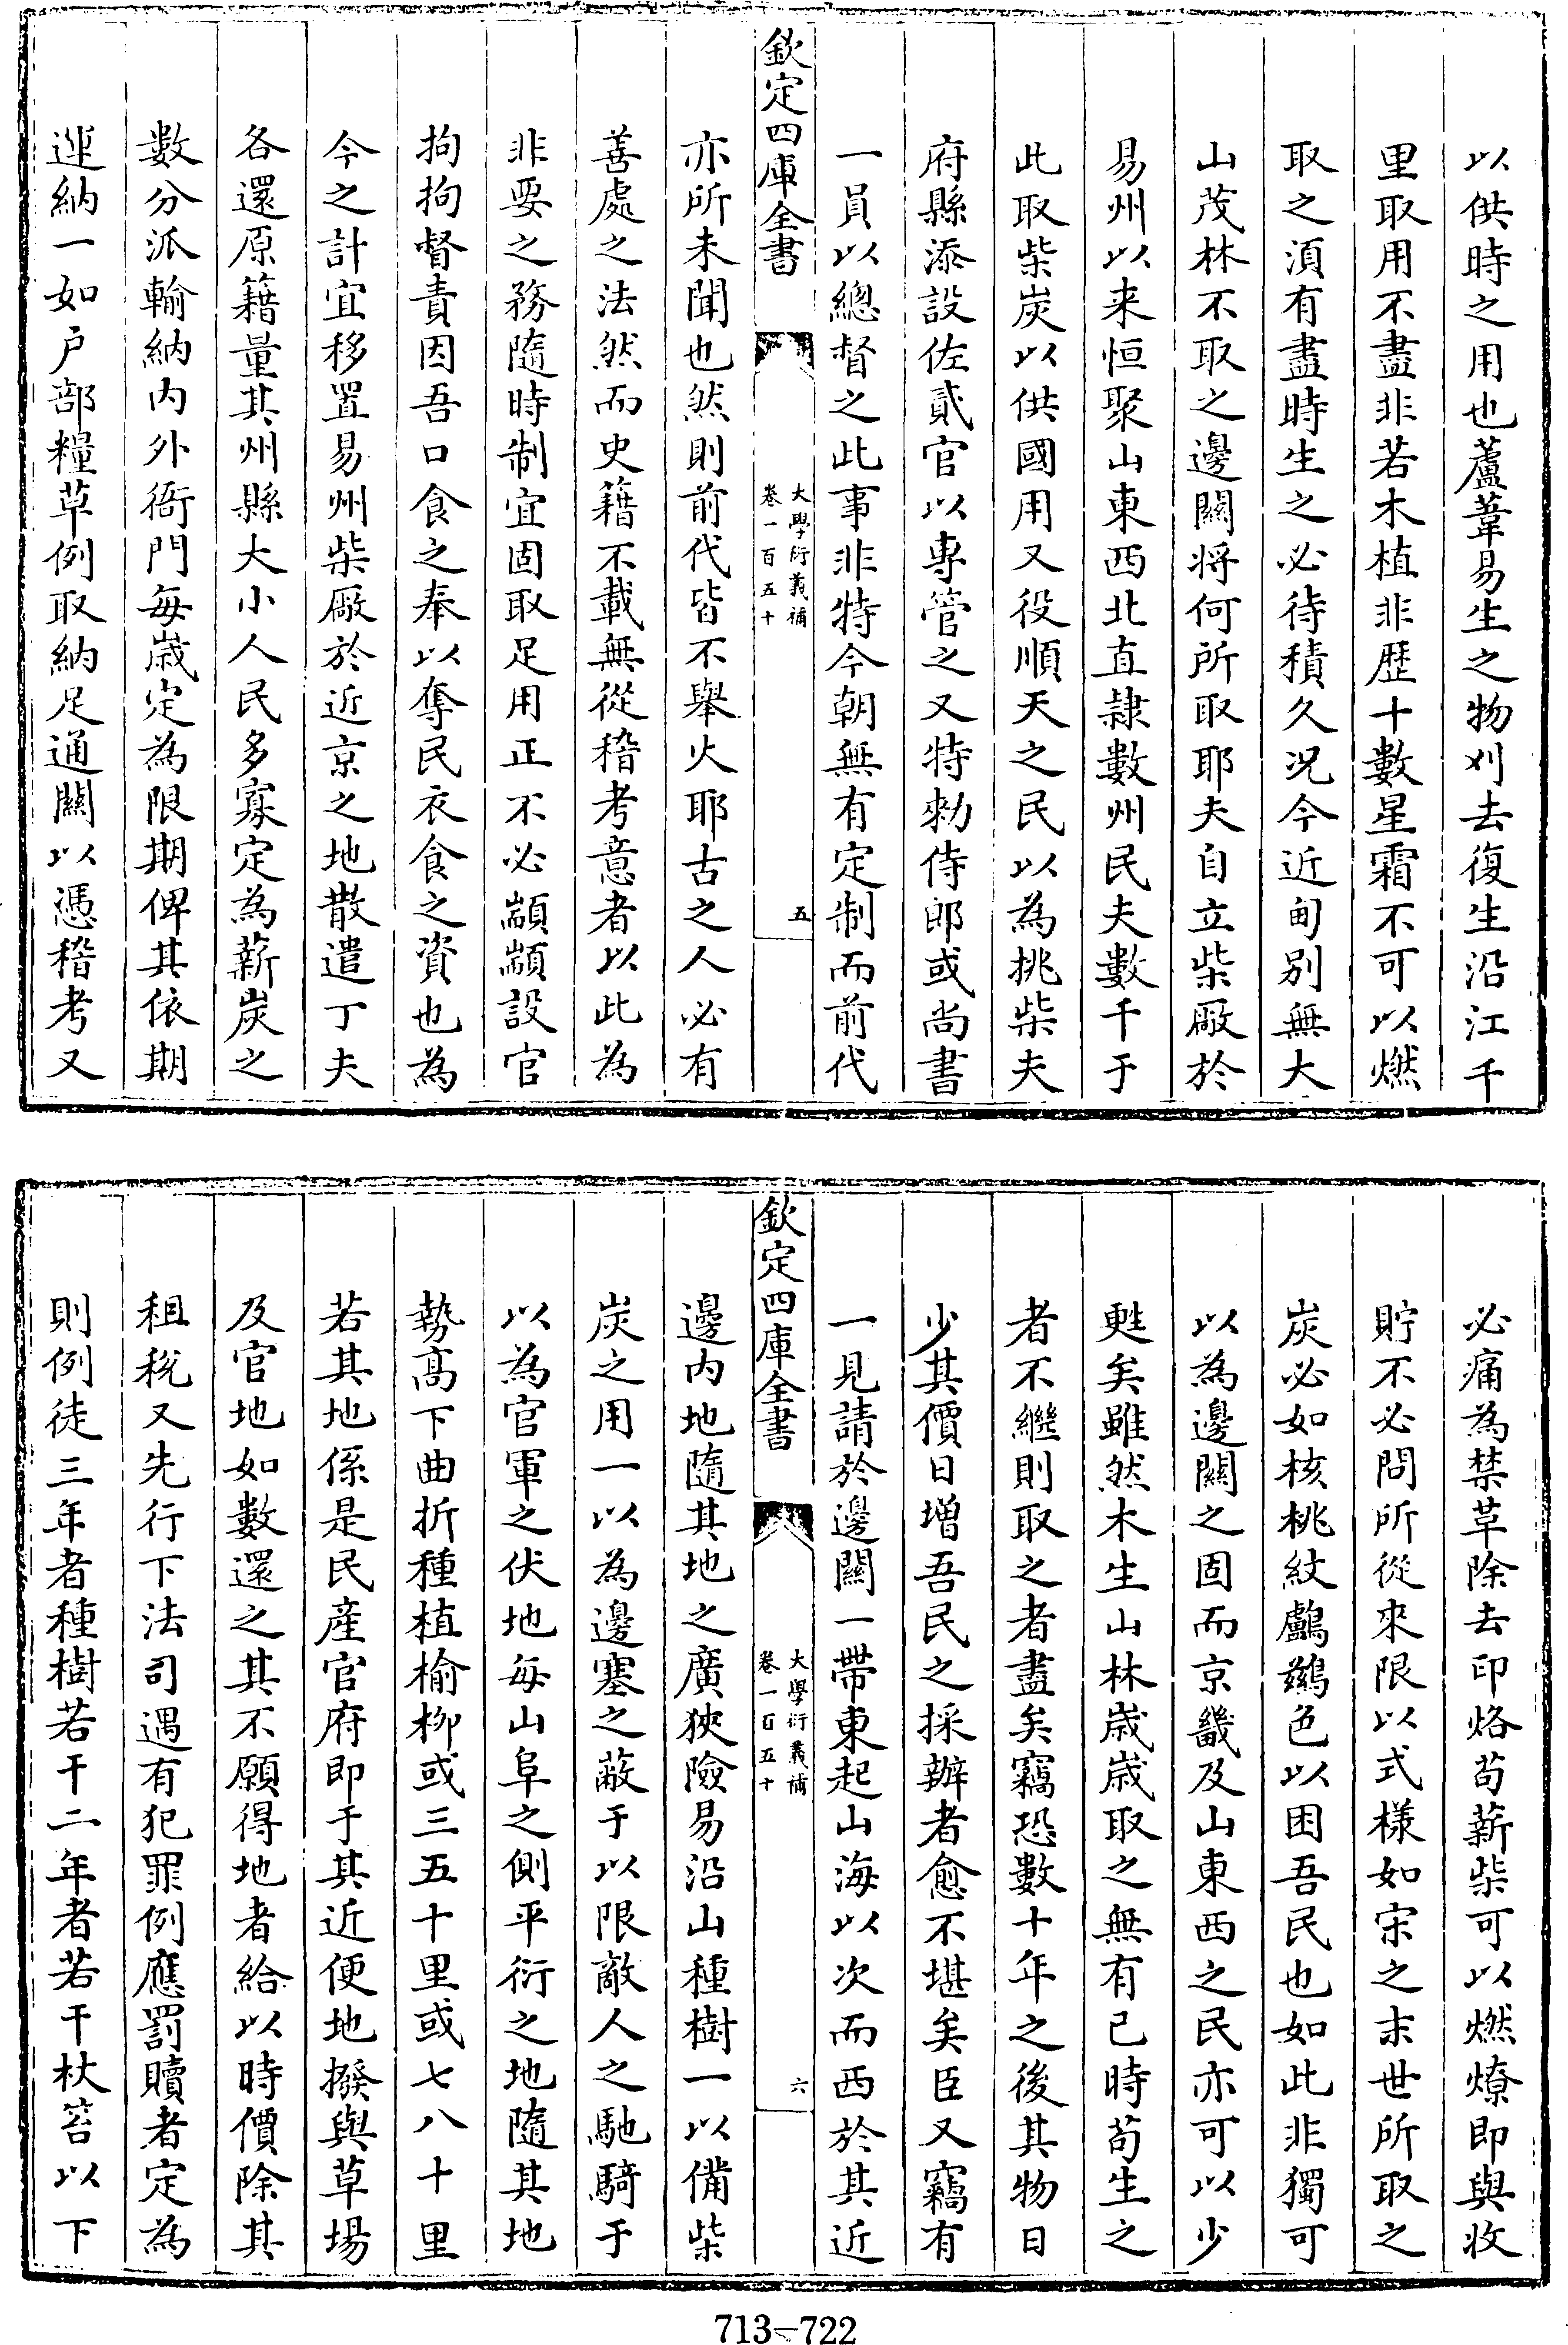 以供時之用也蘆葦易生之物刈去復生沿江千
里取用不盡非若木植非歴十數星霜不可以燃
取之湏有盡時生之必待積久况今近甸别無大
山茂林不取之邊關将何所取耶夫自立柴厰於
易州以来恒聚山東西北直隷數州民夫數千于
此取柴炭以供國用又役順天之民以為挑柴夫
府縣添設佐貳官以專管之又特勑侍郎或尚書
一員以總督之此事非特今朝無有定制而前代
欽定四庫全書
大學衍義補
卷一百五十
五
亦所未聞也然則前代皆不舉火耶古之人必有
善處之法然而史籍不載無從稽考意者以此為
非要之務隨時制宜固取足用正不必顓顓設官
拘拘督責因吾口食之奉以奪民衣食之資也為
今之計宜移置易州柴厰於近京之地散遣丁夫
各還原籍量其州縣大小人民多寡定為薪炭之
數分派輸納内外衙門每嵗定為限期俾其依期
運納一如户部糧草例取納足通關以憑稽考又
必痛為禁革除去印烙茍薪柴可以燃燎即與收
貯不必問所從來限以式様如宋之末世所取之
炭必如核桃紋鸕鷀色以困吾民也如此非獨可
以為邊關之固而京畿及山東西之民亦可以少
甦矣雖然木生山林嵗嵗取之無有已時茍生之
者不繼則取之者盡矣竊恐數十年之後其物日
少其價日增吾民之採辦者愈不堪矣臣又竊有
一見請於邊關一帶東起山海以次而西於其近
欽定四庫全書
大學衍義補
卷一百五十
六
邊内地隨其地之廣狹險易沿山種樹一以備柴
炭之用一以為邊塞之蔽于以限敵人之馳騎于
以為官軍之伏地每山阜之側平衍之地隨其地
勢高下曲折種植榆柳或三五十里或七八十里
若其地係是民産官府即于其近便地撥與草場
及官地如數還之其不願得地者給以時價除其
租稅又先行下法司遇有犯罪例應罰贖者定為
則例徒三年者種樹若干二年者若干杖笞以下
713-722